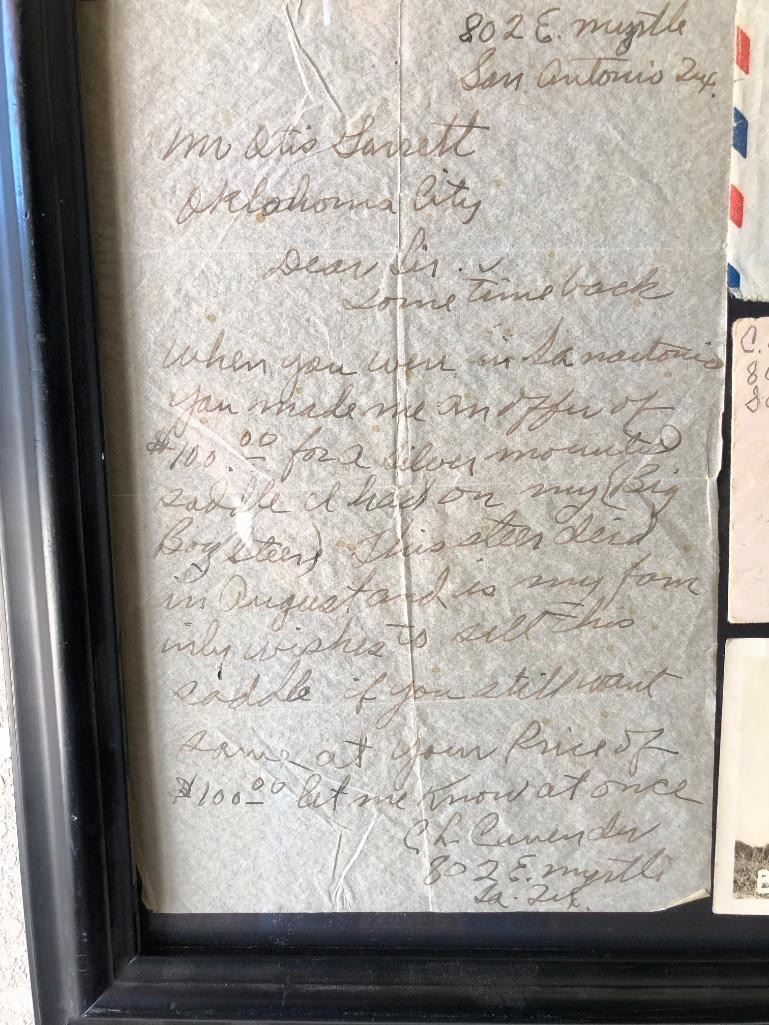 802 E. myrtle
San Antonio Tex.
Mr Otis Garrett
Oklahoma City
Dear Sir.
Some time back
when you were in Sanantonio
you made me an offer of
$100.00 for a silver mounted
saddle I had on my (Big
Boy Steer) This steer died
in August and is my fam
inly wishes to sell this
saddle if you still want
same at your Price of
$100.00 let me know at once
C L Cavender
802 E. myrtle
Sa. Tex.
C.
80
B